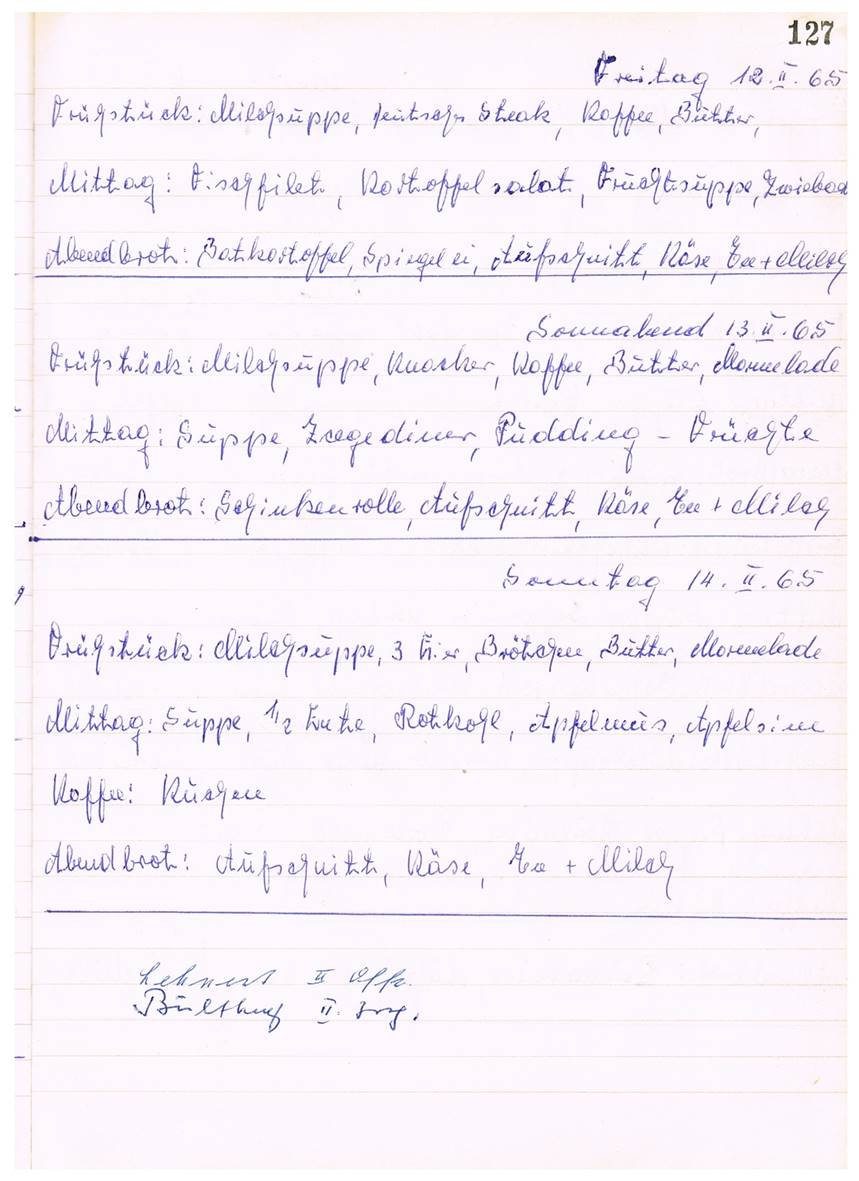 127
Freitag 12. II. 65
Frühstück: Milchsuppe, deutsches Steak, Kaffee, Butter,
Mittag: Fischfilet, Kartoffelsalat, Fruchtsuppe, Zwieback
Abendbrot: Bratkartoffel, Spiegelei, Aufschnitt, Käse, Tee + Milch
Sonnabend 13. II. 65
Frühstück: Milchsuppe, Knacker, Kaffee, Butter, Marmelade
Mittag: Suppe, Szegediner, Pudding - Früchte
Abendbrot: Schinkenrolle, Aufschnitt, Käse, Tee + Milch
Sonntag 14. II. 65
Frühstück: Milchsuppe, 3 Eier, Brötchen, Butter, Marmelade
Mittag: Suppe, 1/2 Ente, Rotkohl, Apfelmus, Apfelsine
Kaffee: Kuchen
Abendbrot: Aufschnitt, Käse, Tee + Milch
Lehnert II Offz.
II. Ing.